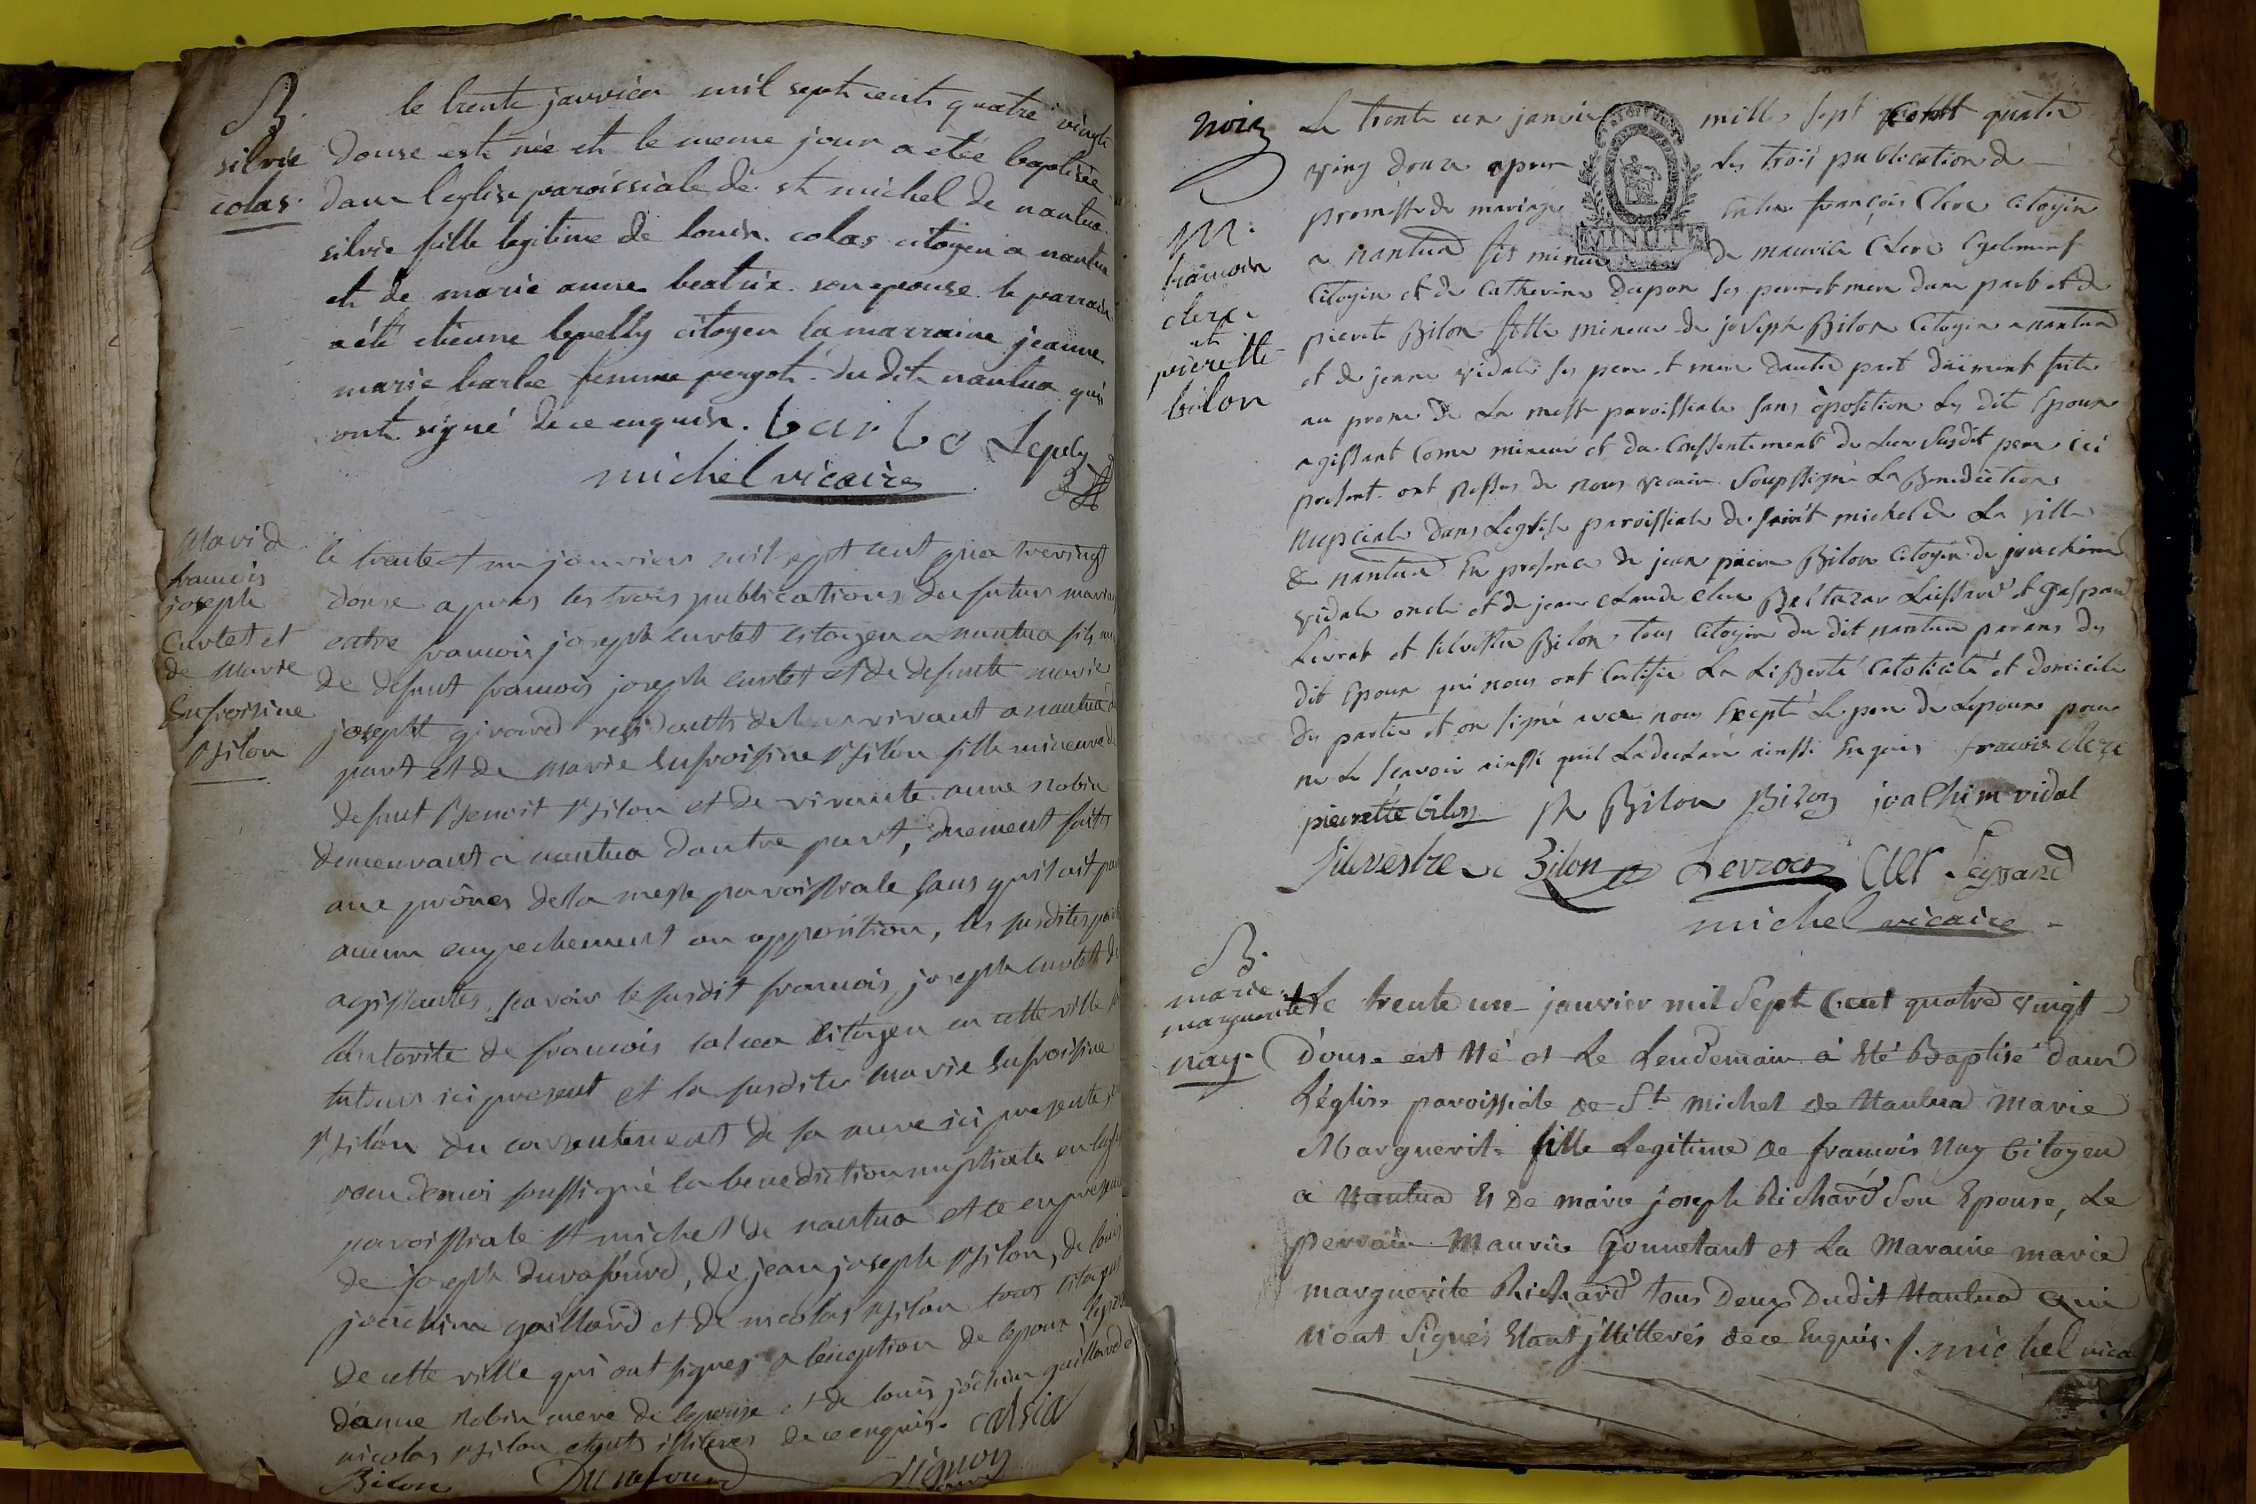 B.
silvie
colas.
le trente janvier mil sept cents quatre vingts
douse est née et le meme jour a etée baptisée
dans l'eglise paroissiale de st michel de nantua
silvie fille legitime de louis colas citoyen a nantua
et de marie anne beatrix son epouse. le parrain
a été etienne citoyen la marraine jeanne
marie barbe femme pergot du dit nantua qui
ont signé de ce enquis. barbe
michel vicaire
Mari de
francois
joseph
Curtet et
de Marie
Eufroisine
Bilon
le trente et un janvier mil sept cent quatrevingt
douse apres les trois publications du futur maria
entre francois joseph curtet citoyen a nantua fils
de defunt francois joseph curtet et de defunte marie
josepht girard residants de leur vivant a nantua
part et de Marie Eufroisine Bilon fille mineure de
defunt Benoit Bilon et de vivante anne Robin
demeurant a nantua dautre part, duement faites
aux prônes de la messe paroissiale sans quil ait paru
aucun empechement ou opposition, les susdites parti
agissantes, savoir le susdit francois joseph curtet de
lautorite de francois citoyen en cette ville
tuteur ici present et la susdite Marie Eufroisine
Bilon du consentement de sa mere ici presente
soussigné la benediction nuptiale en
paroissiale st michel de nantua et ce en presence
de joseph durafourd, de jean joseph Bilon, de louis
joachim gaillard et de nicolas Bilon tous citoyens
de cette ville qui ont signes a lexception de lepoux
danne Robin mere de lepouse et de louis jochim gaillard
nicolas Bilon etants illiteres de ce enquis.
Bilon Durafourd
M.
francois
clerc
et
pierette
bilon
Le trente un janvier mille sept cent quatre
ving douze apres les trois publication de
promesse de mariage entre françois Clerc Citoyin
a nantua fis mineur de maurice Clerc egalement
Citoyin et de Catherine Dupon ses pere et mere dune part et de
pierete Bilon fille mineur de joseph Bilon Citoyin a nantua
et de jeanne vidale ses pere et mere dautre part duiment faite
au prone de La messe paroissiale sans oposition Les dit Epoux
agissant Come mineur et du Conssentement de Leur susdit pere ici
present ont Ressus de nous vicaire soupssigne La Benediction
Nupciale dans Leglise paroissiale de saint michel de La ville
de nantua En presence de jean piere Bilon Citoyin de joachime
vidale oncle et de jean Claude Clerc Baltazar et gaspard
Levrat et silvestre Bilon tous Citoyin du dit nantua parans des
dit Epoux qui nous ont Certifie La Liberté Catolicité et domicile
des partie et on signé avec nous Excepté Le pere de Lepoux pour
ne Le scavoir ainssi quil La declaré ainssi Enquis francois clerc
pierette bilon JP Bilon Bilon joachim vidal
Silvestre Bilon Levrat Cler
michel vicaire
B.
marie
marguerite
nay.
Le trente un janvier mil sept Cent quatre vingt
douse est Né et Le Lendemain a Eté Baptisé dans
L'église paroissiale de St michel de Nantua Marie
Marguerite fille Legitime de francois Nay Citoyen
a Nantua Et De marie joseph Richard Son Epouse, Le
perrain Maurice Gonnetant et La Maraine marie
marguerite Richard tous Deux Dudit Nantua qui
N'ont Signés Etant jllitterés de ce Enquis. michel vica